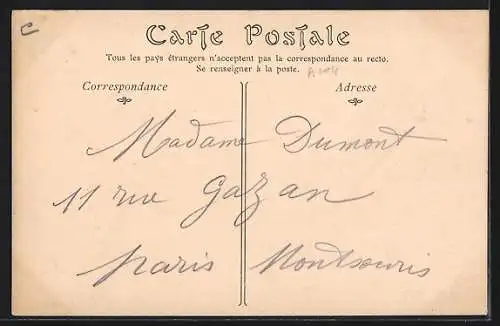 Carte Postale
Tous les pays étrangers n'acceptent pas la correspondance au recto.
Se renseigner à la poste.
Correspondance Adresse
Madame Dumont
11 rue Gazan
Paris Montsouris